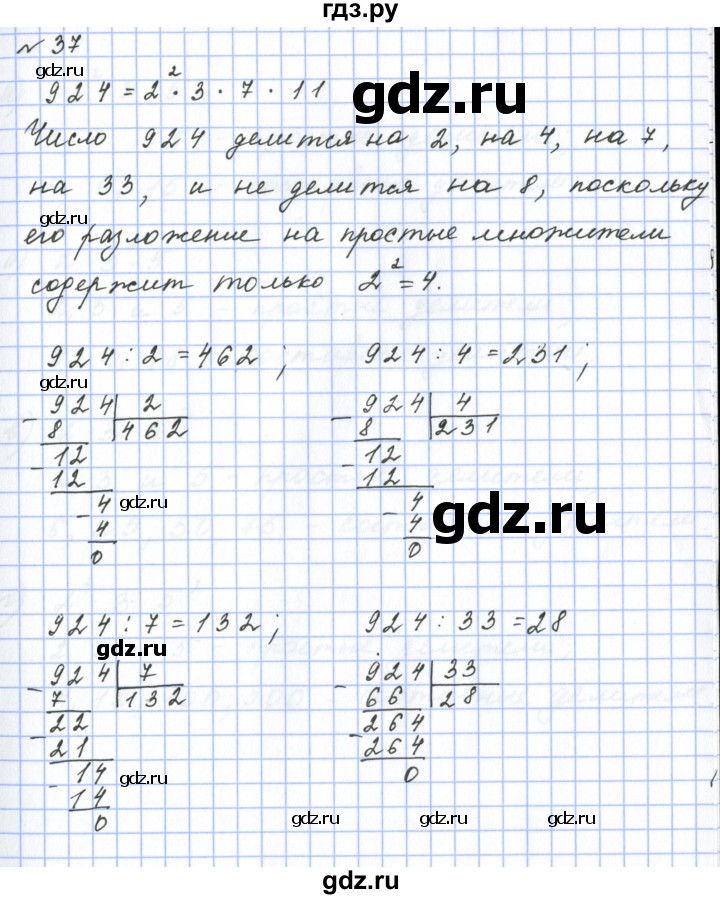 гдз.ру
№ 37
gdz.ru
924 = 2² · 3 · 7 · 11
Число 924 делится на 2, на 4, на 7,
на 33, и не делится на 8, поскольку
gdz.ru
его разложение на простые множители
содержит только 2² = 4.
924 : 2 = 462 ; 924 : 4 = 231 ;
gdz.ru
- 924 | 2
8 | 462
- 12
12
- 4
4
0
gdz.ru
- 924 | 4
8 | 231
- 12
12
- 4
4
0
gdz.ru
924 : 7 = 132 ; 924 : 33 = 28
gdz.ru
- 924 | 7
7 | 132
- 22
21
- 14
14
0
gdz.ru
- 924 | 33
66 | 28
- 264
264
0
gdz.ru
gdz.ru
gdz.ru